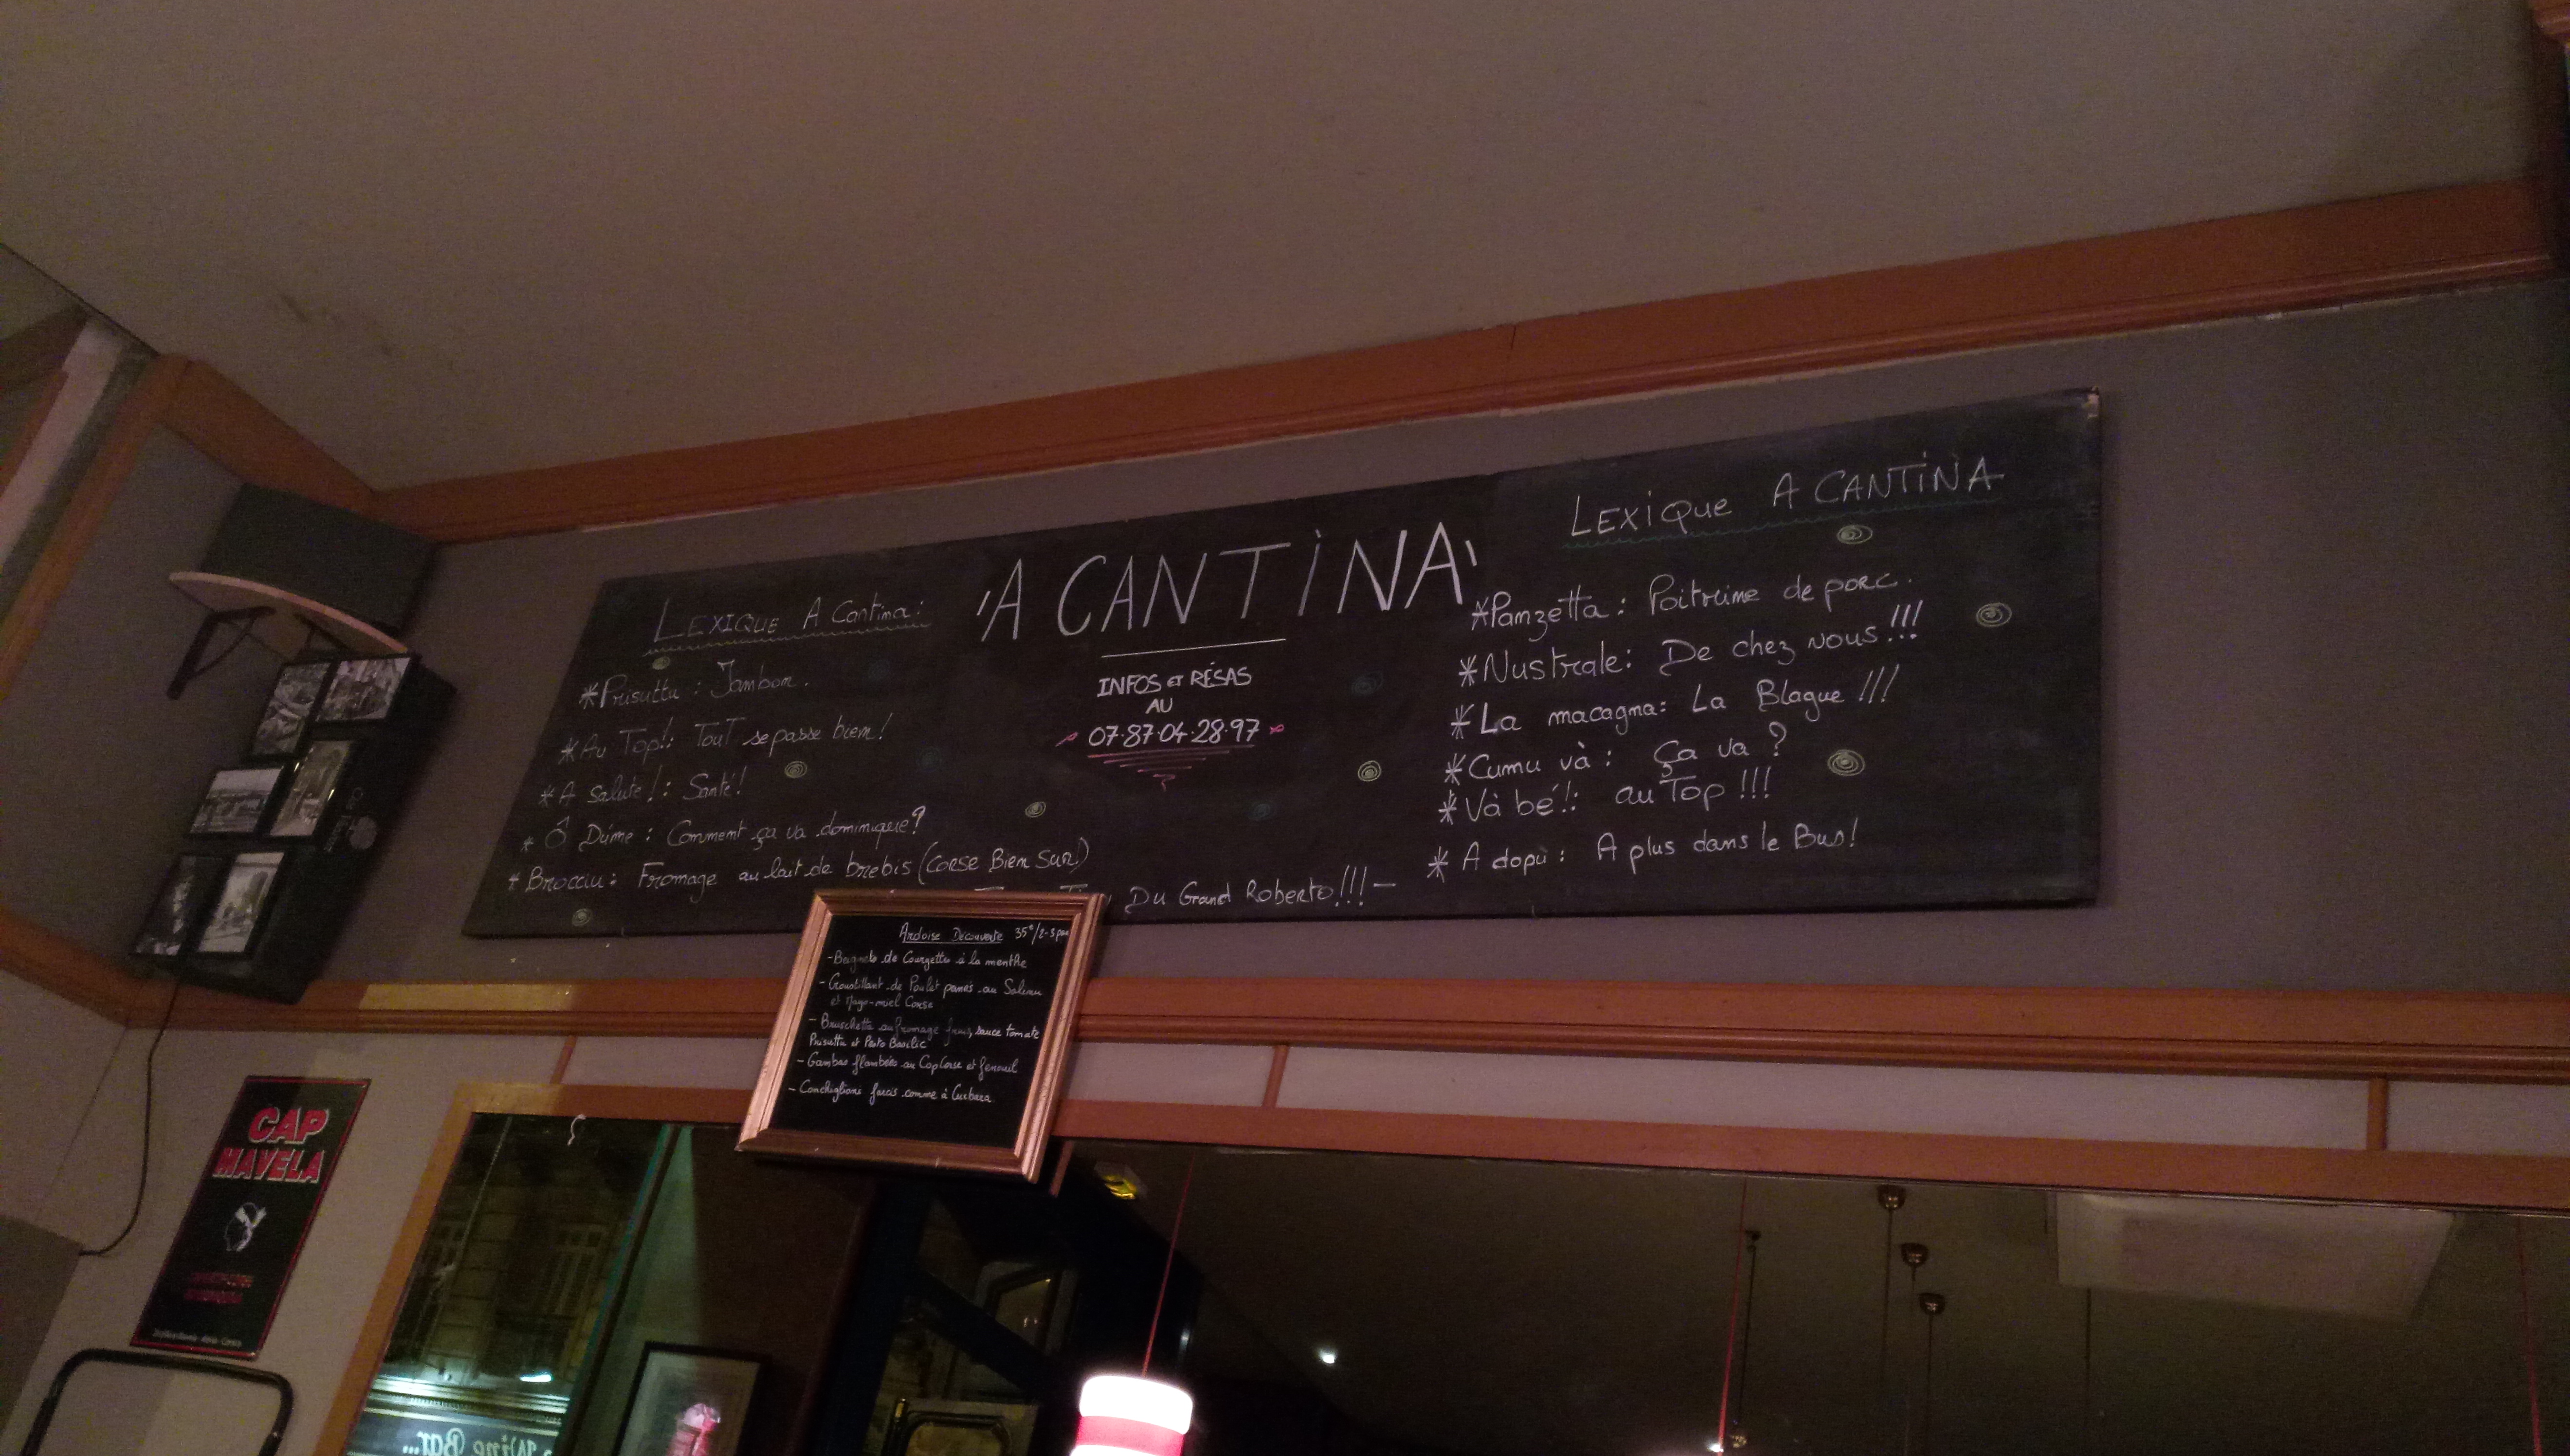 LEXIQUE A Cantina:
*Prisuttu : Jambon.
*Au Top!: Tout se passe bien!
*A Salute!: Santé!
* Ô Dumè : Comment ça va dominique?
*Brocciu: Fromage au lait de brebis (Corse Bien Sur!)
'A CANTINA'
INFOS et RÉSAS
AU
07.87.04.28.97
Du Grand Roberto!!! -
LEXIQUE A CANTINA
*Panzetta: Poitrine de porc.
*Nustrale: De chez nous!!!
*La macagna: La Blague!!!
*Cumu và: Ça va ?
*Và bé!: au Top!!!
* A dopu: A plus dans le Bus!
Ardoise Découverte 35€/2-3 per
-Beignets de Courgettes à la menthe
-Croustillant de Poulet panés au
et Mayo-miel Corse
-Bruschetta au fromage frais, sauce tomate
Prisuttu et Pesto Basilic
-Gambas flambées au Cap Corse et fenouil
-Conchiglioni farcis comme à Curbara
CAP
MAVELA
Wine Bar...